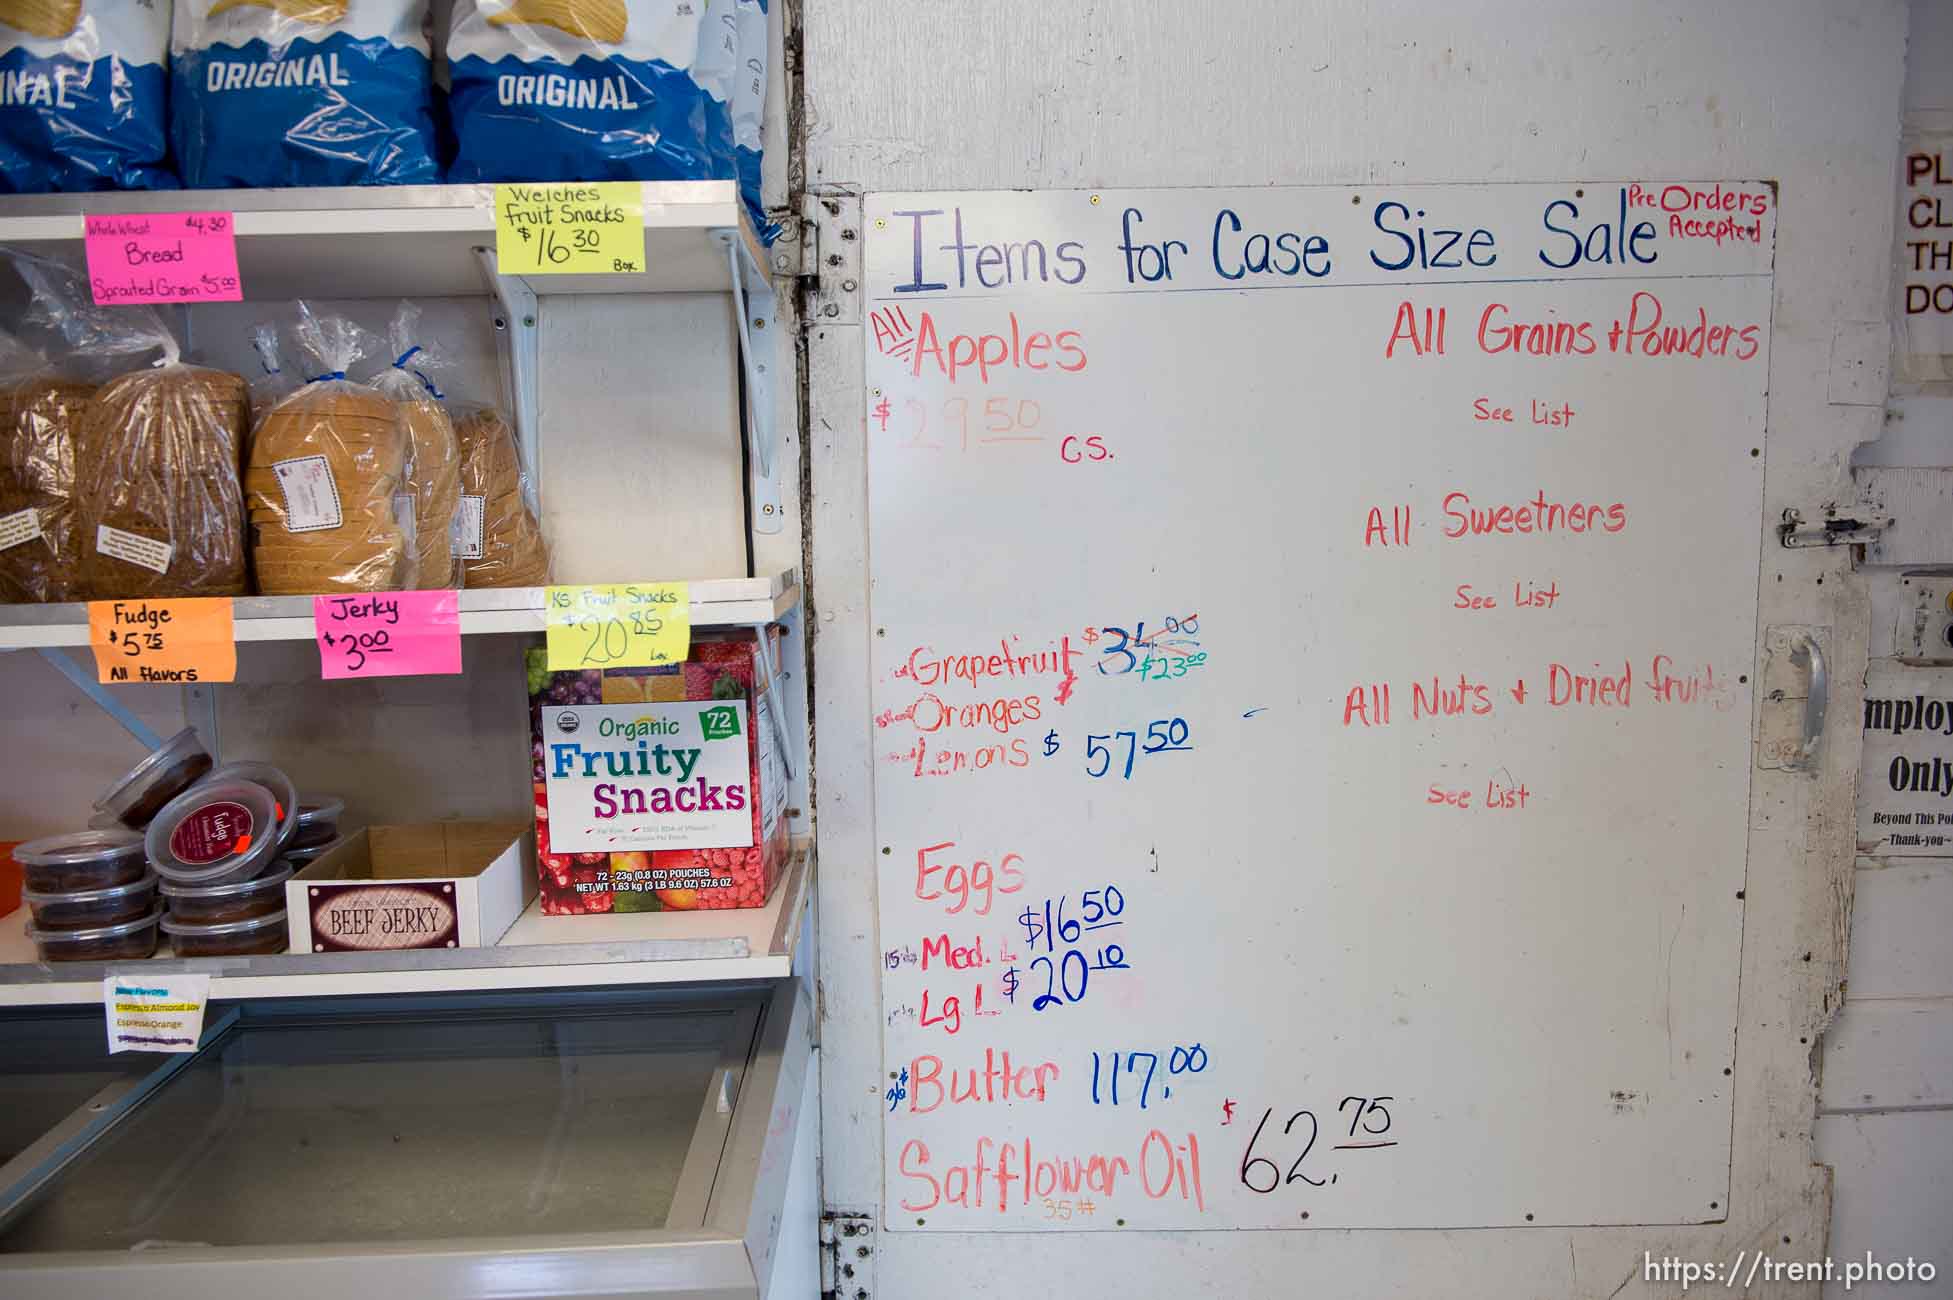 INAL
ORIGINAL
ORIGINAL
Whole Wheat $4.30
Bread
Sprouted Grain $5.00
Welches
Fruit Snacks
$16 30
Box
Fudge
$5 75
All flavors
Jerky
$3 00
KS Fruit Snacks
$20 85
Organic
72
Fruity
Snacks
72 - 23g (0.8 OZ) POUCHES
NET WT 1.63 kg (3 LB 9.6 OZ) 57.6 OZ
Fudge
BEEF JERKY
New Flavors
Espresso Almond Joy
Espresso Orange
Items for Case Size Sale
Pre Orders
Accepted
All Apples
$29 50
CS.
Grapefruit $34 00
$23 00
Oranges $
Lemons $57 50
Eggs
Med. L $16 50
Lg. L $20 10
36# Butter 117.00
Safflower Oil $62.75
35#
All Grains + Powders
See List
All Sweetners
See List
All Nuts + Dried fruits
See List
PL
CL
TH
DO
mploy
Only
Beyond This Poi
~Thank-you~
https://trent.photo